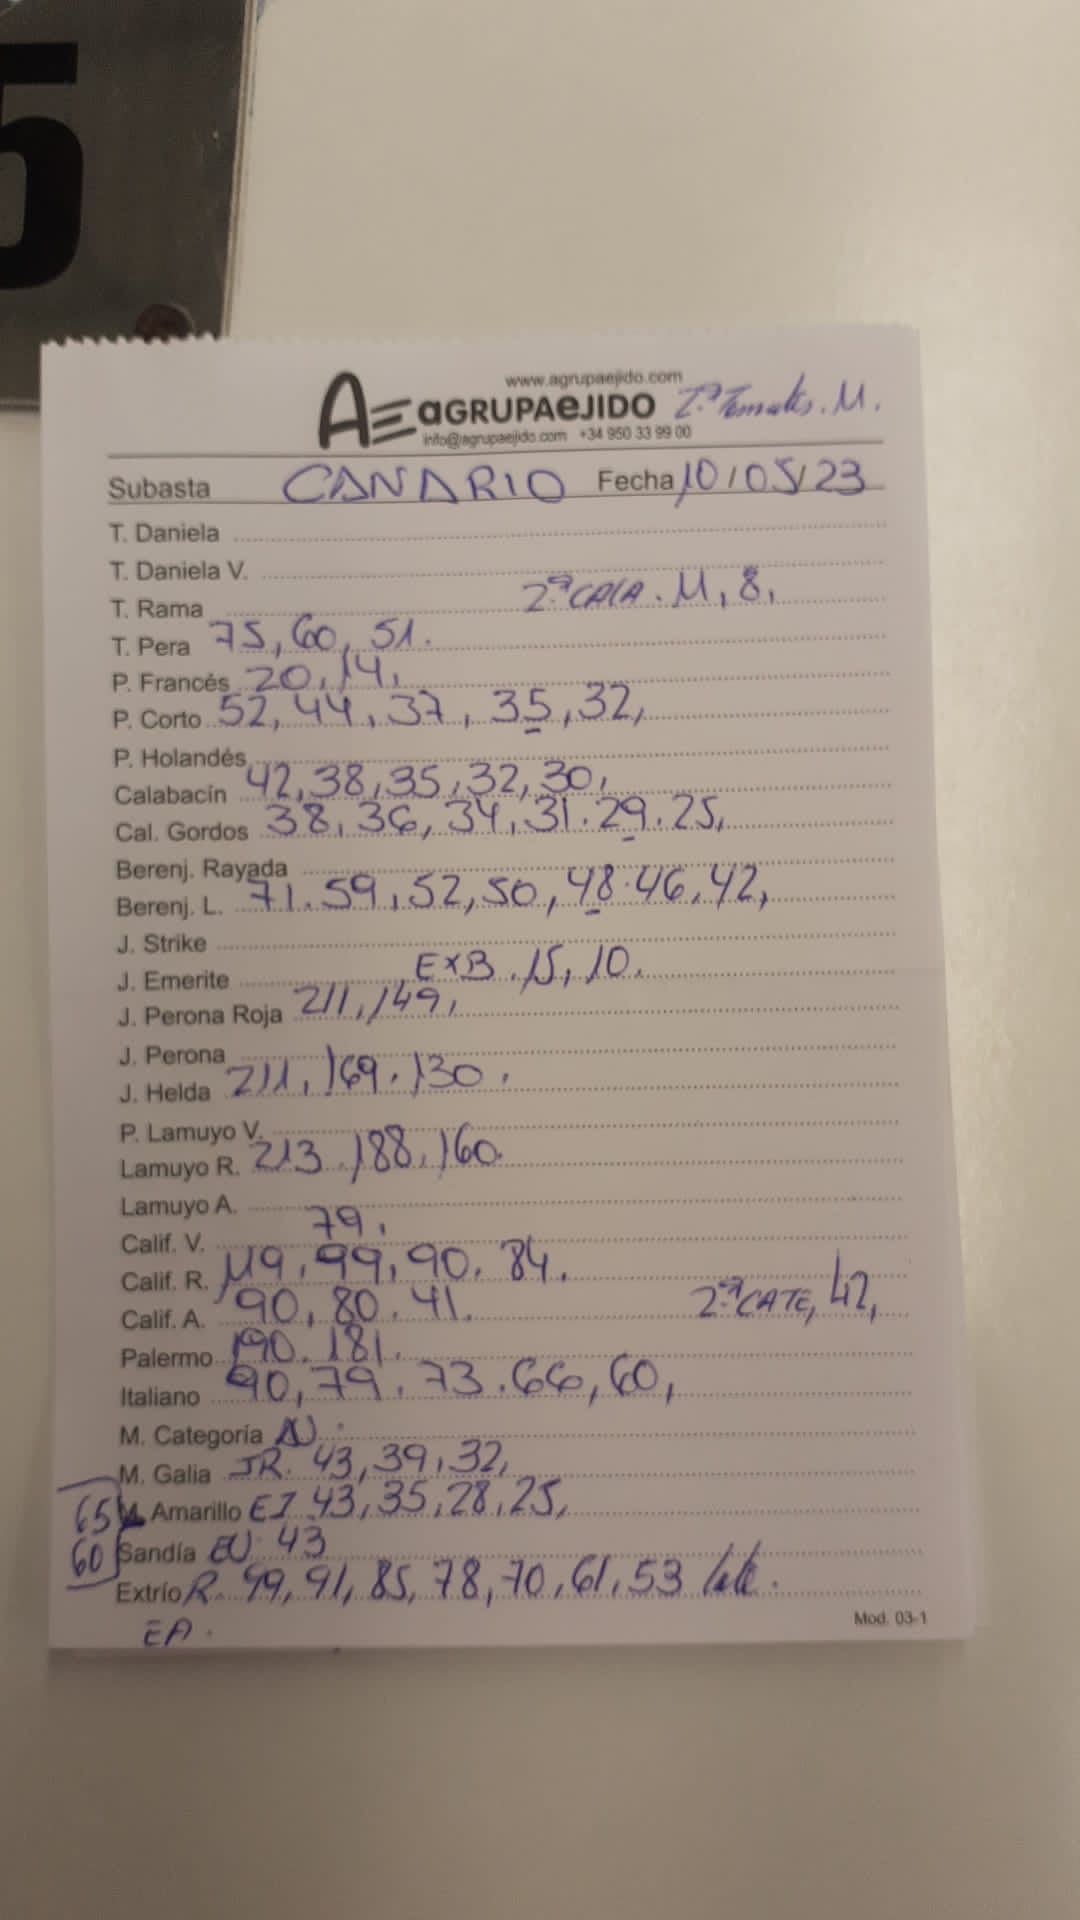 5
www.agrupaejido.com
AGRUPAEJIDO 2ª Tomates. M.
info@agrupaejido.com +34 950 33 99 00
Subasta CANARIO Fecha 10/05/23
T. Daniela
T. Daniela V.
T. Rama 2ª CALA. 11, 8,
T. Pera 75, 60, 51.
P. Francés 20, 14,
P. Corto 52, 44, 37, 35, 32,
P. Holandés
Calabacín 42, 38, 35, 32, 30,
Cal. Gordos 38, 36, 34, 31. 29. 25,
Berenj. Rayada
Berenj. L. 71. 59, 52, 50, 48. 46, 42,
J. Strike
J. Emerite EXB. 15, 10.
J. Perona Roja 211, 149,
J. Perona
J. Helda 211, 169. 130.
P. Lamuyo V.
Lamuyo R. 213. 188, 160.
Lamuyo A.
Calif. V. 79,
Calif. R. 119, 99, 90. 84.
Calif. A. 90, 80. 41. 2ª CATE, 42,
Palermo 190. 181.
Italiano 90, 79. 73. 66, 60,
M. Categoría
M. Galia JR. 43, 39, 32,
65 M. Amarillo EJ. 43, 35, 28, 25,
60 Sandía EU. 43
Extrío R. 99, 91, 85, 78, 70, 61, 53
EA.
Mod. 03-1